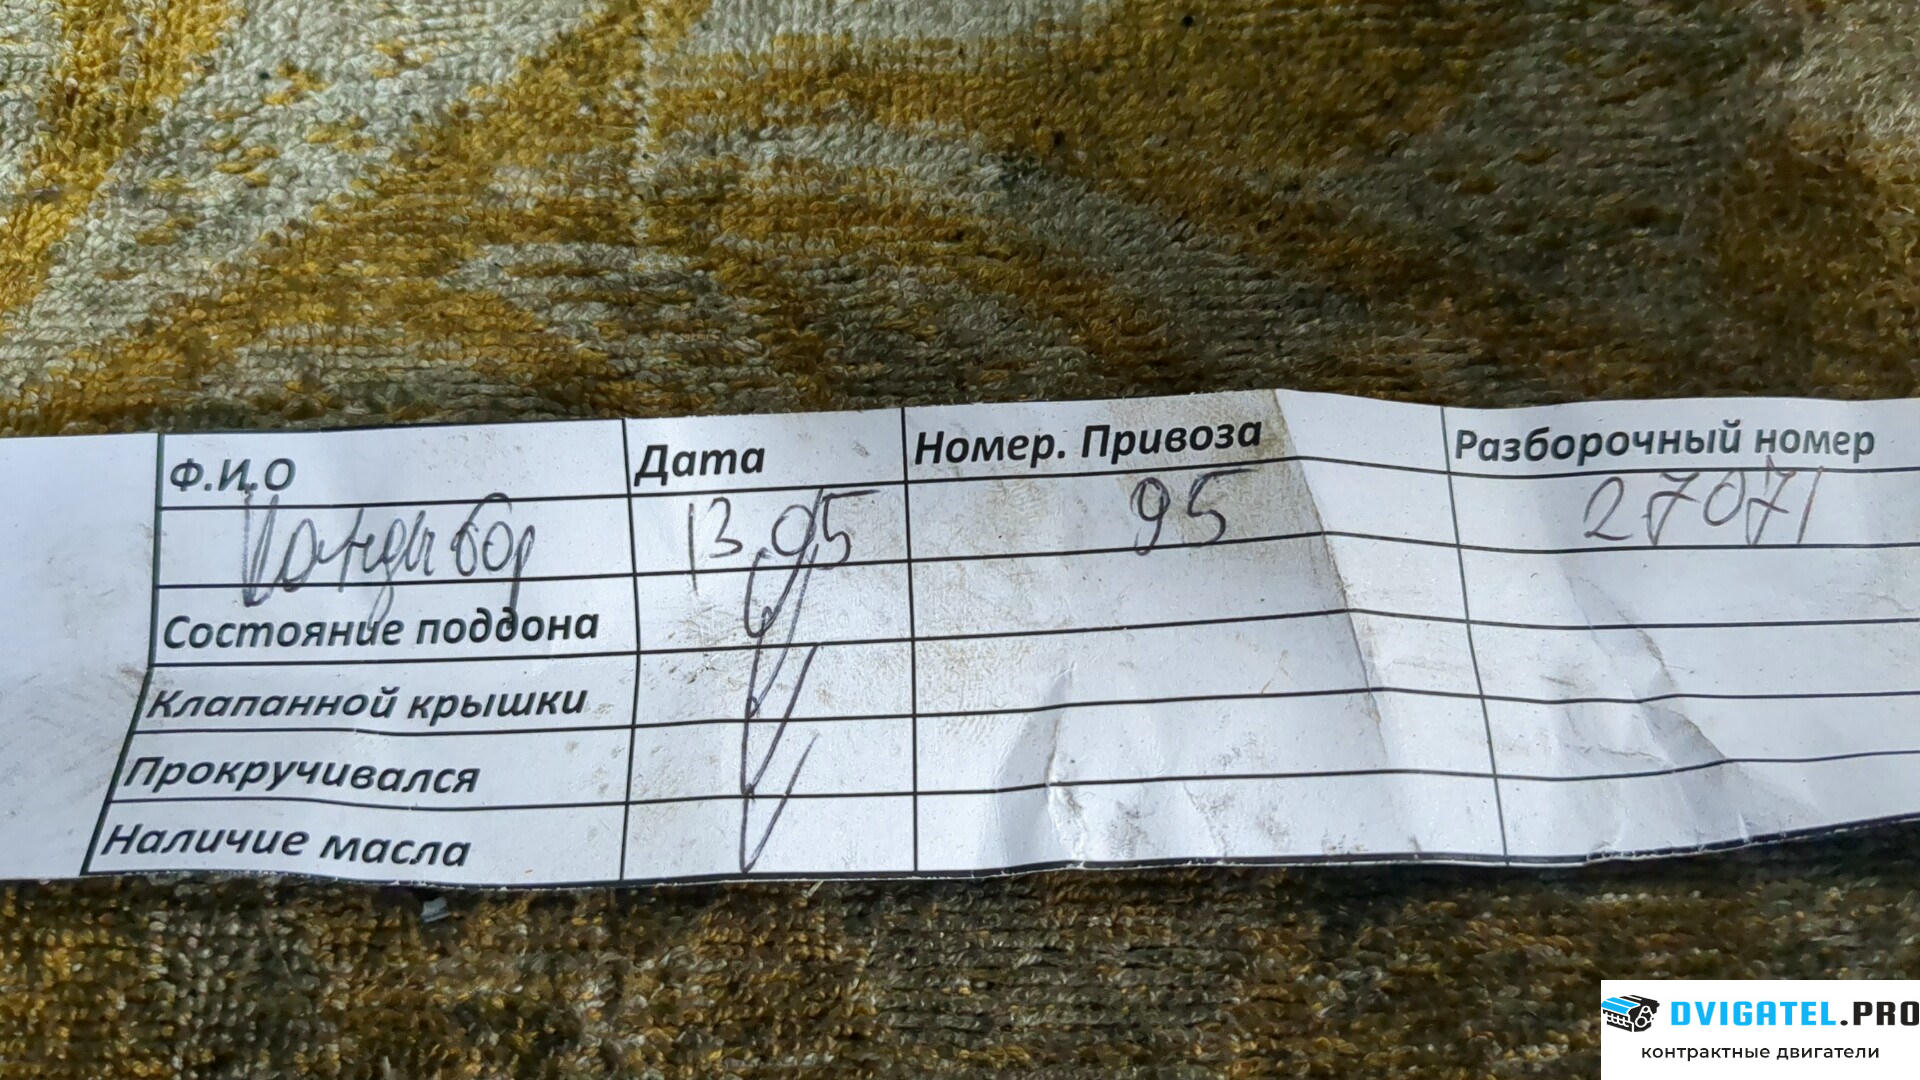 Ф.И.О Дата Номер. Привоза Разборочный номер
13.05 95 27071
Состояние поддона
Клапанной крышки
Прокручивался
Наличие масла
DVIGATEL.PRO
контрактные двигатели